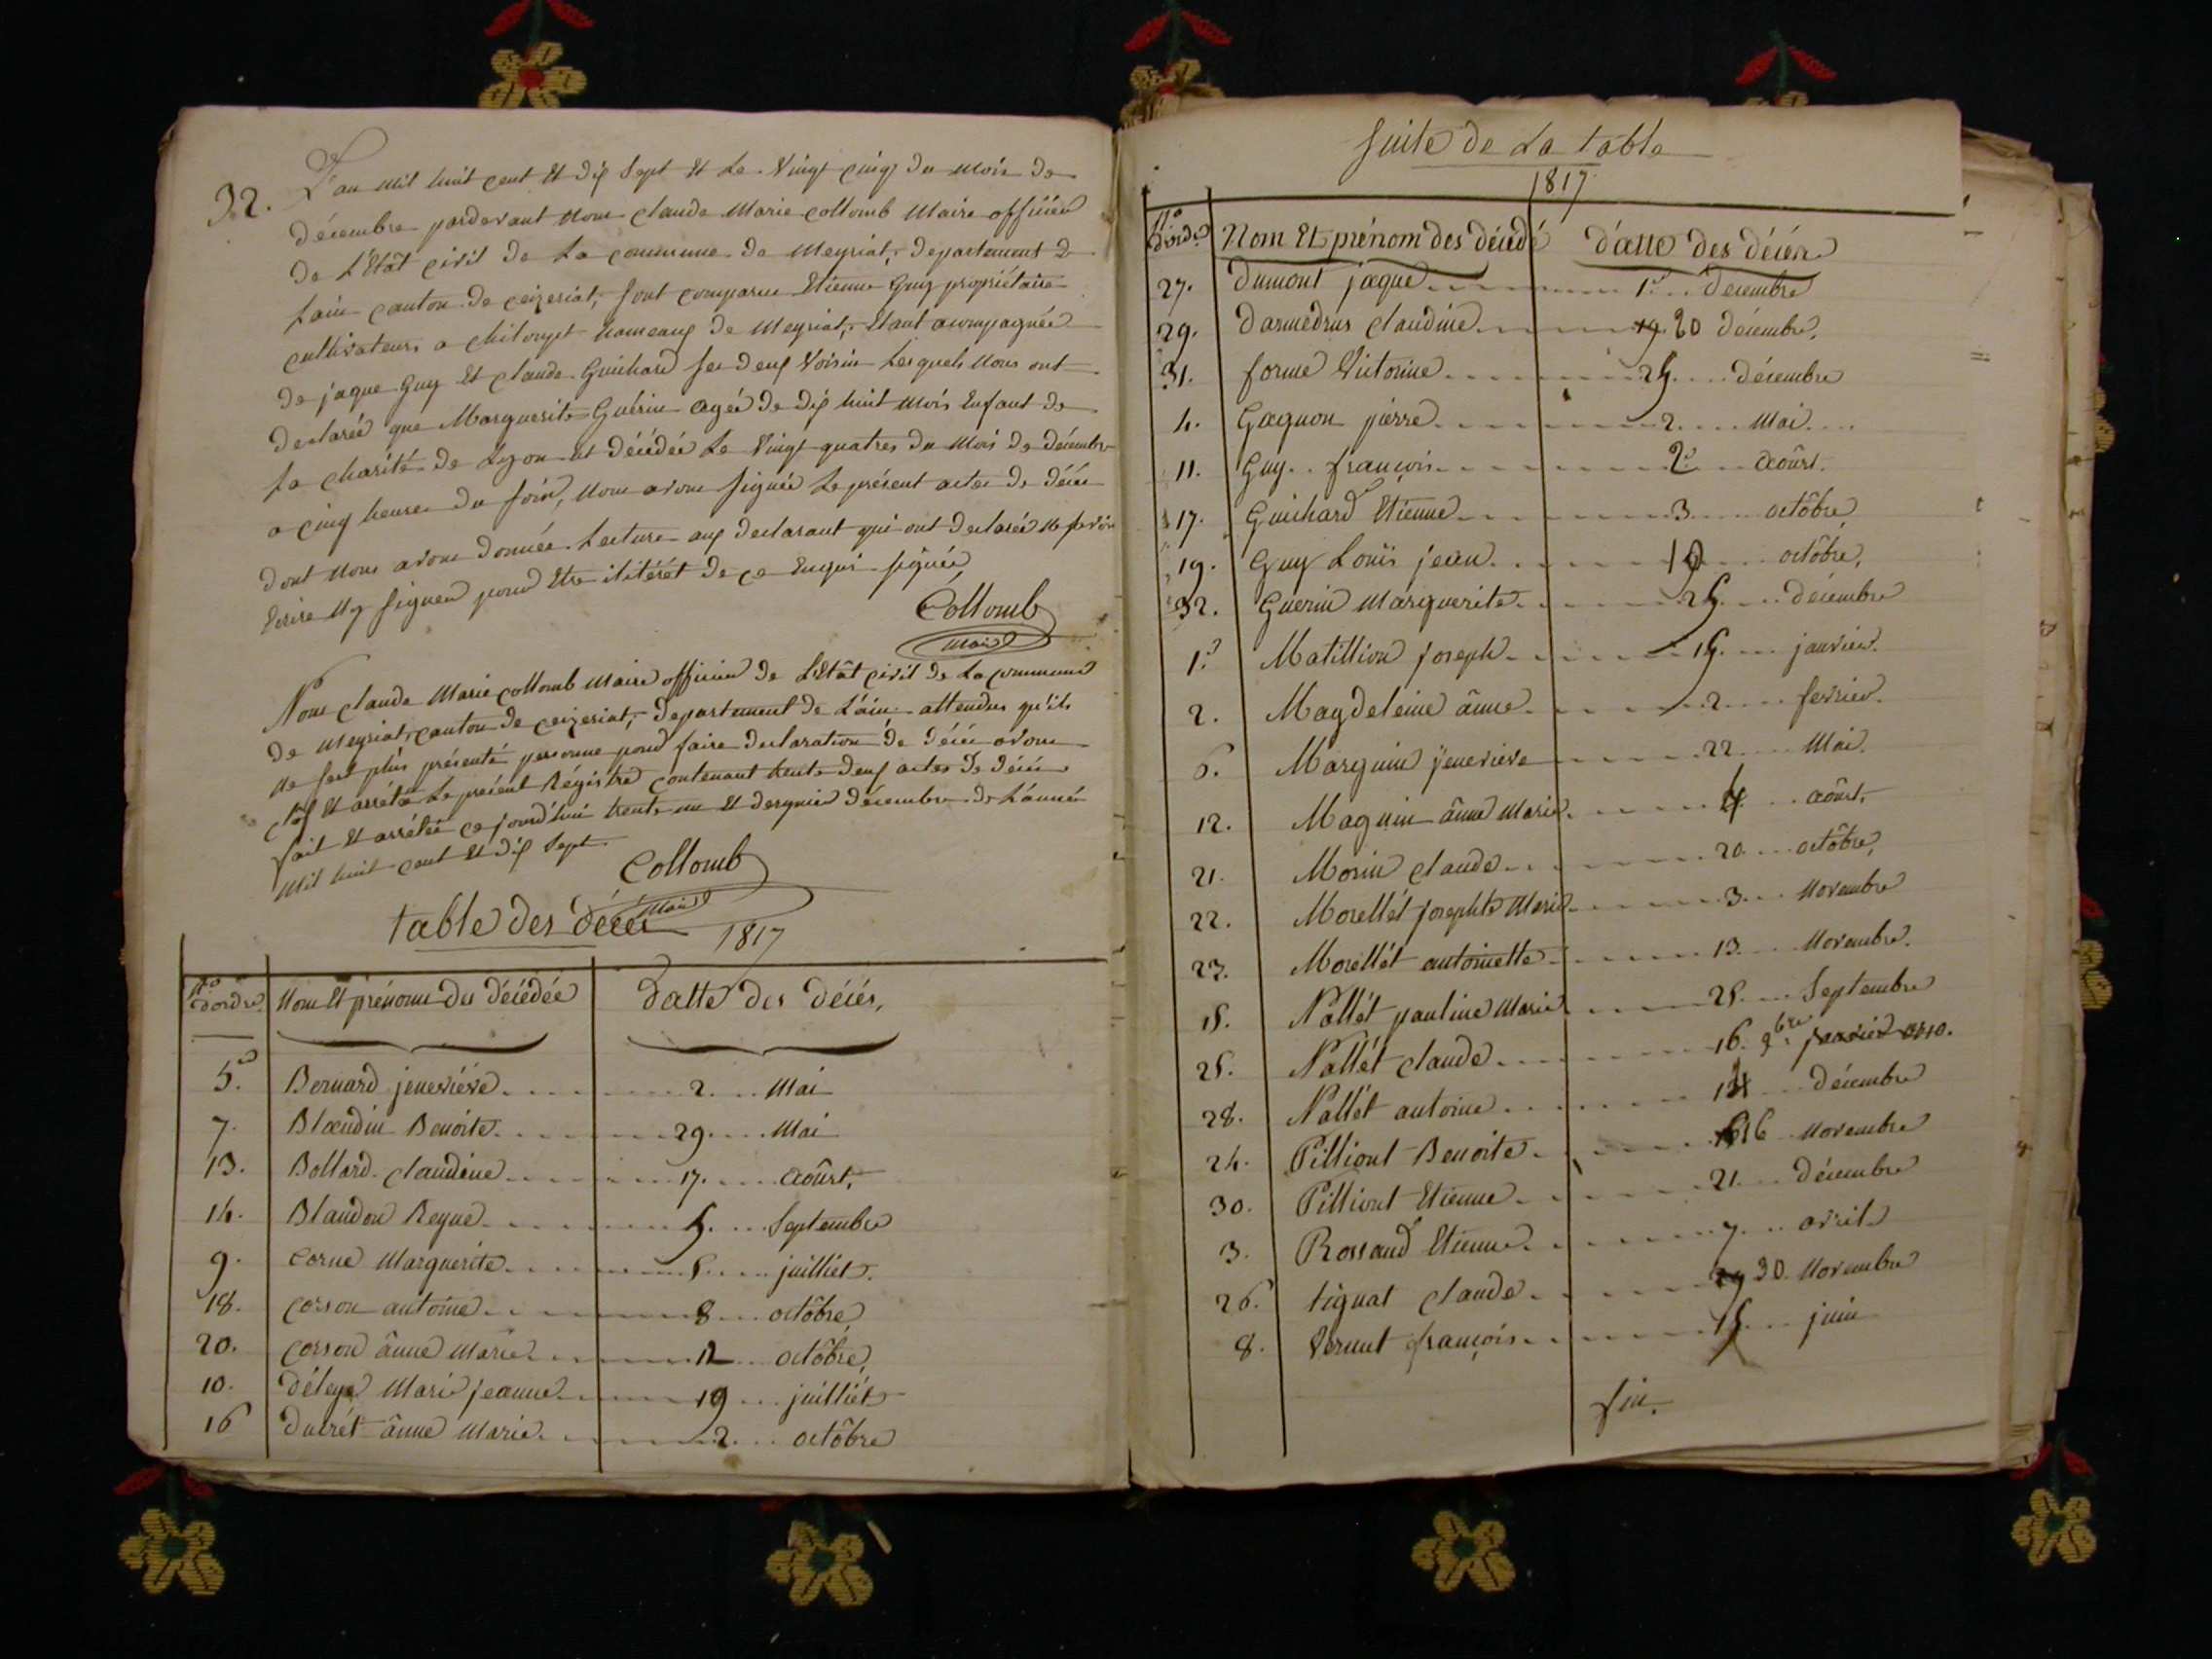 32. L'an mil huit cent Et dix Sept Et Le Vingt cinq du mois de
décembre pardevant nous claude Marie collomb Maire officier
de L'Etât civil de La commune de Meyriat, departement de
Lain canton de ceizeriat, sont comparus Etienne Guy propriétaire
cultivateurs a hameaux de Meyriat, Etant acompagnée
de jaque Guy Et claude Guichard ses deux Voisin Lesquels Nous ont
declarée que Marguerite Guérin agée de dix huit mois Enfant de
La charité de Lyon est décédée Le Vingt quatres du Mois de décembre
a cinq heures du soir, nous avons signée Le présent actes de décès
dont nous avons donnée Lecture aux declarant qui ont declarée ne savoir
Ecrire Ny signer pour Etre de ce Enquis signée
Collomb
Maire
Nous claude Marie collomb Maire officier de L'Etât civil de La commune
de Meyriat, canton de ceizeriat, departement de L'ain attendus qu'ils
ne sest plus présenté personne pour faire declaration de décès avons
clos Et arrété Le présent Régistre contenant trente deux actes de décès
fait Et arrélée ce jourd'hui trente un Et dergnier décembre de L'année
mil huit cent Et dix Sept
Collomb
Maire
table des décès 1817
N.o d'ordre Nom Et prénoms des décédée datte des décés,
5. Bernard jeneviéve 2. Mai
7. Blœndin Benoite 29. Mai
13. Bollard claudine 17. août,
14. Blandon Reyne 5. Septembre
9. Corne Marguerite 5. juilliet.
18. Corson antoine 8 octôbre
20. Corson ânne Marie 12 octôbre,
10. Mari jeanne 19 juilliét
16 ducrét ânne Marie 2. octôbre
Suite de La table
1817
N.o d'ordre Nom Et prénom des décedé d'atte des décén
27. dumont jaque 1.er decembre
29. darmedrus claudine 19. 20 décembre,
31. forme Victorine 25. décembre
4. Gagnon pierre 2. Mai
11. Guy françois 2. août.
17. Guichard Etienne 3 octôbre
19. Guy Louis jean 10 octôbre,
32. Guerin Marguerite 25. décembre
1.er Matillion Joseph 15. janvier.
2. Magdeleine ânne 2 fevrier.
6. Marguin jenevieve 22 Mai.
12. Maguin ânne Marie 4 août,
21. Morin claude 20 octôbre,
22. Morellét josephte Marie 3. Novembre
23. Morellét antoinette 13. Novembre.
15. Nallét pauline Marie 25. Septembre
25. Nallét claude 16. 9.bre
28. Nallét antoine 14 décembre
24. Pilliont Benoite 16 Novembre
30. Pilliont Etienne 21. décembre
3. Rossand Etienne 7. avril
26. tignat claude 29 30. Novembre
8. Vernut françois 15. juin
fin.